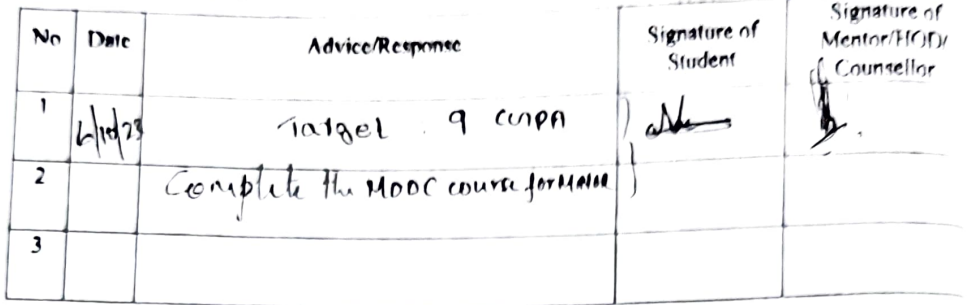 No Date Advice/Response Signature of Student Signature of Mentor/HOD/ Counsellor
1 6/10/23 Target 9 CGPA
2 Complete the MOOC course for
3